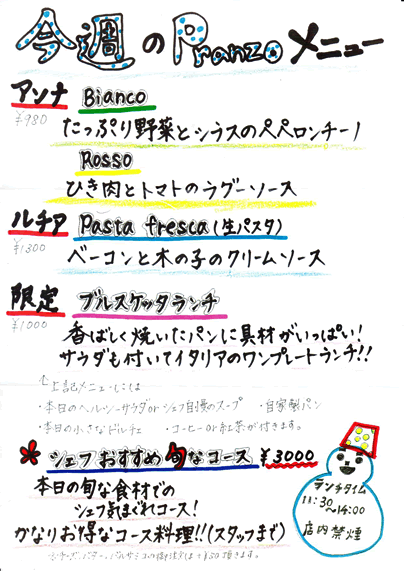 今週のPranzoメニュー
アンナ Bianco
¥980
たっぷり野菜とシラスのペペロンチーノ
Rosso
ひき肉とトマトのラグーソース
ルチア Pasta fresca(生パスタ)
¥1300
ベーコンと木の子のクリームソース
限定 ブルスケッタランチ
¥1000
香ばしく焼いたパンに具材がいっぱい!
サラダも付いてイタリアのワンプレートランチ!!
上記メニューには
・本日のヘルシーサラダorシェフ自慢のスープ ・自家製パン
・本日の小さなドルチェ ・コーヒーor紅茶が付きます。
*シェフおすすめ旬なコース ¥3000
本日の旬な食材での
シェフ気まぐれコース!
かなりお得なコース料理!!(スタッフまで)
ランチタイム
11:30
～14:00
店内禁煙